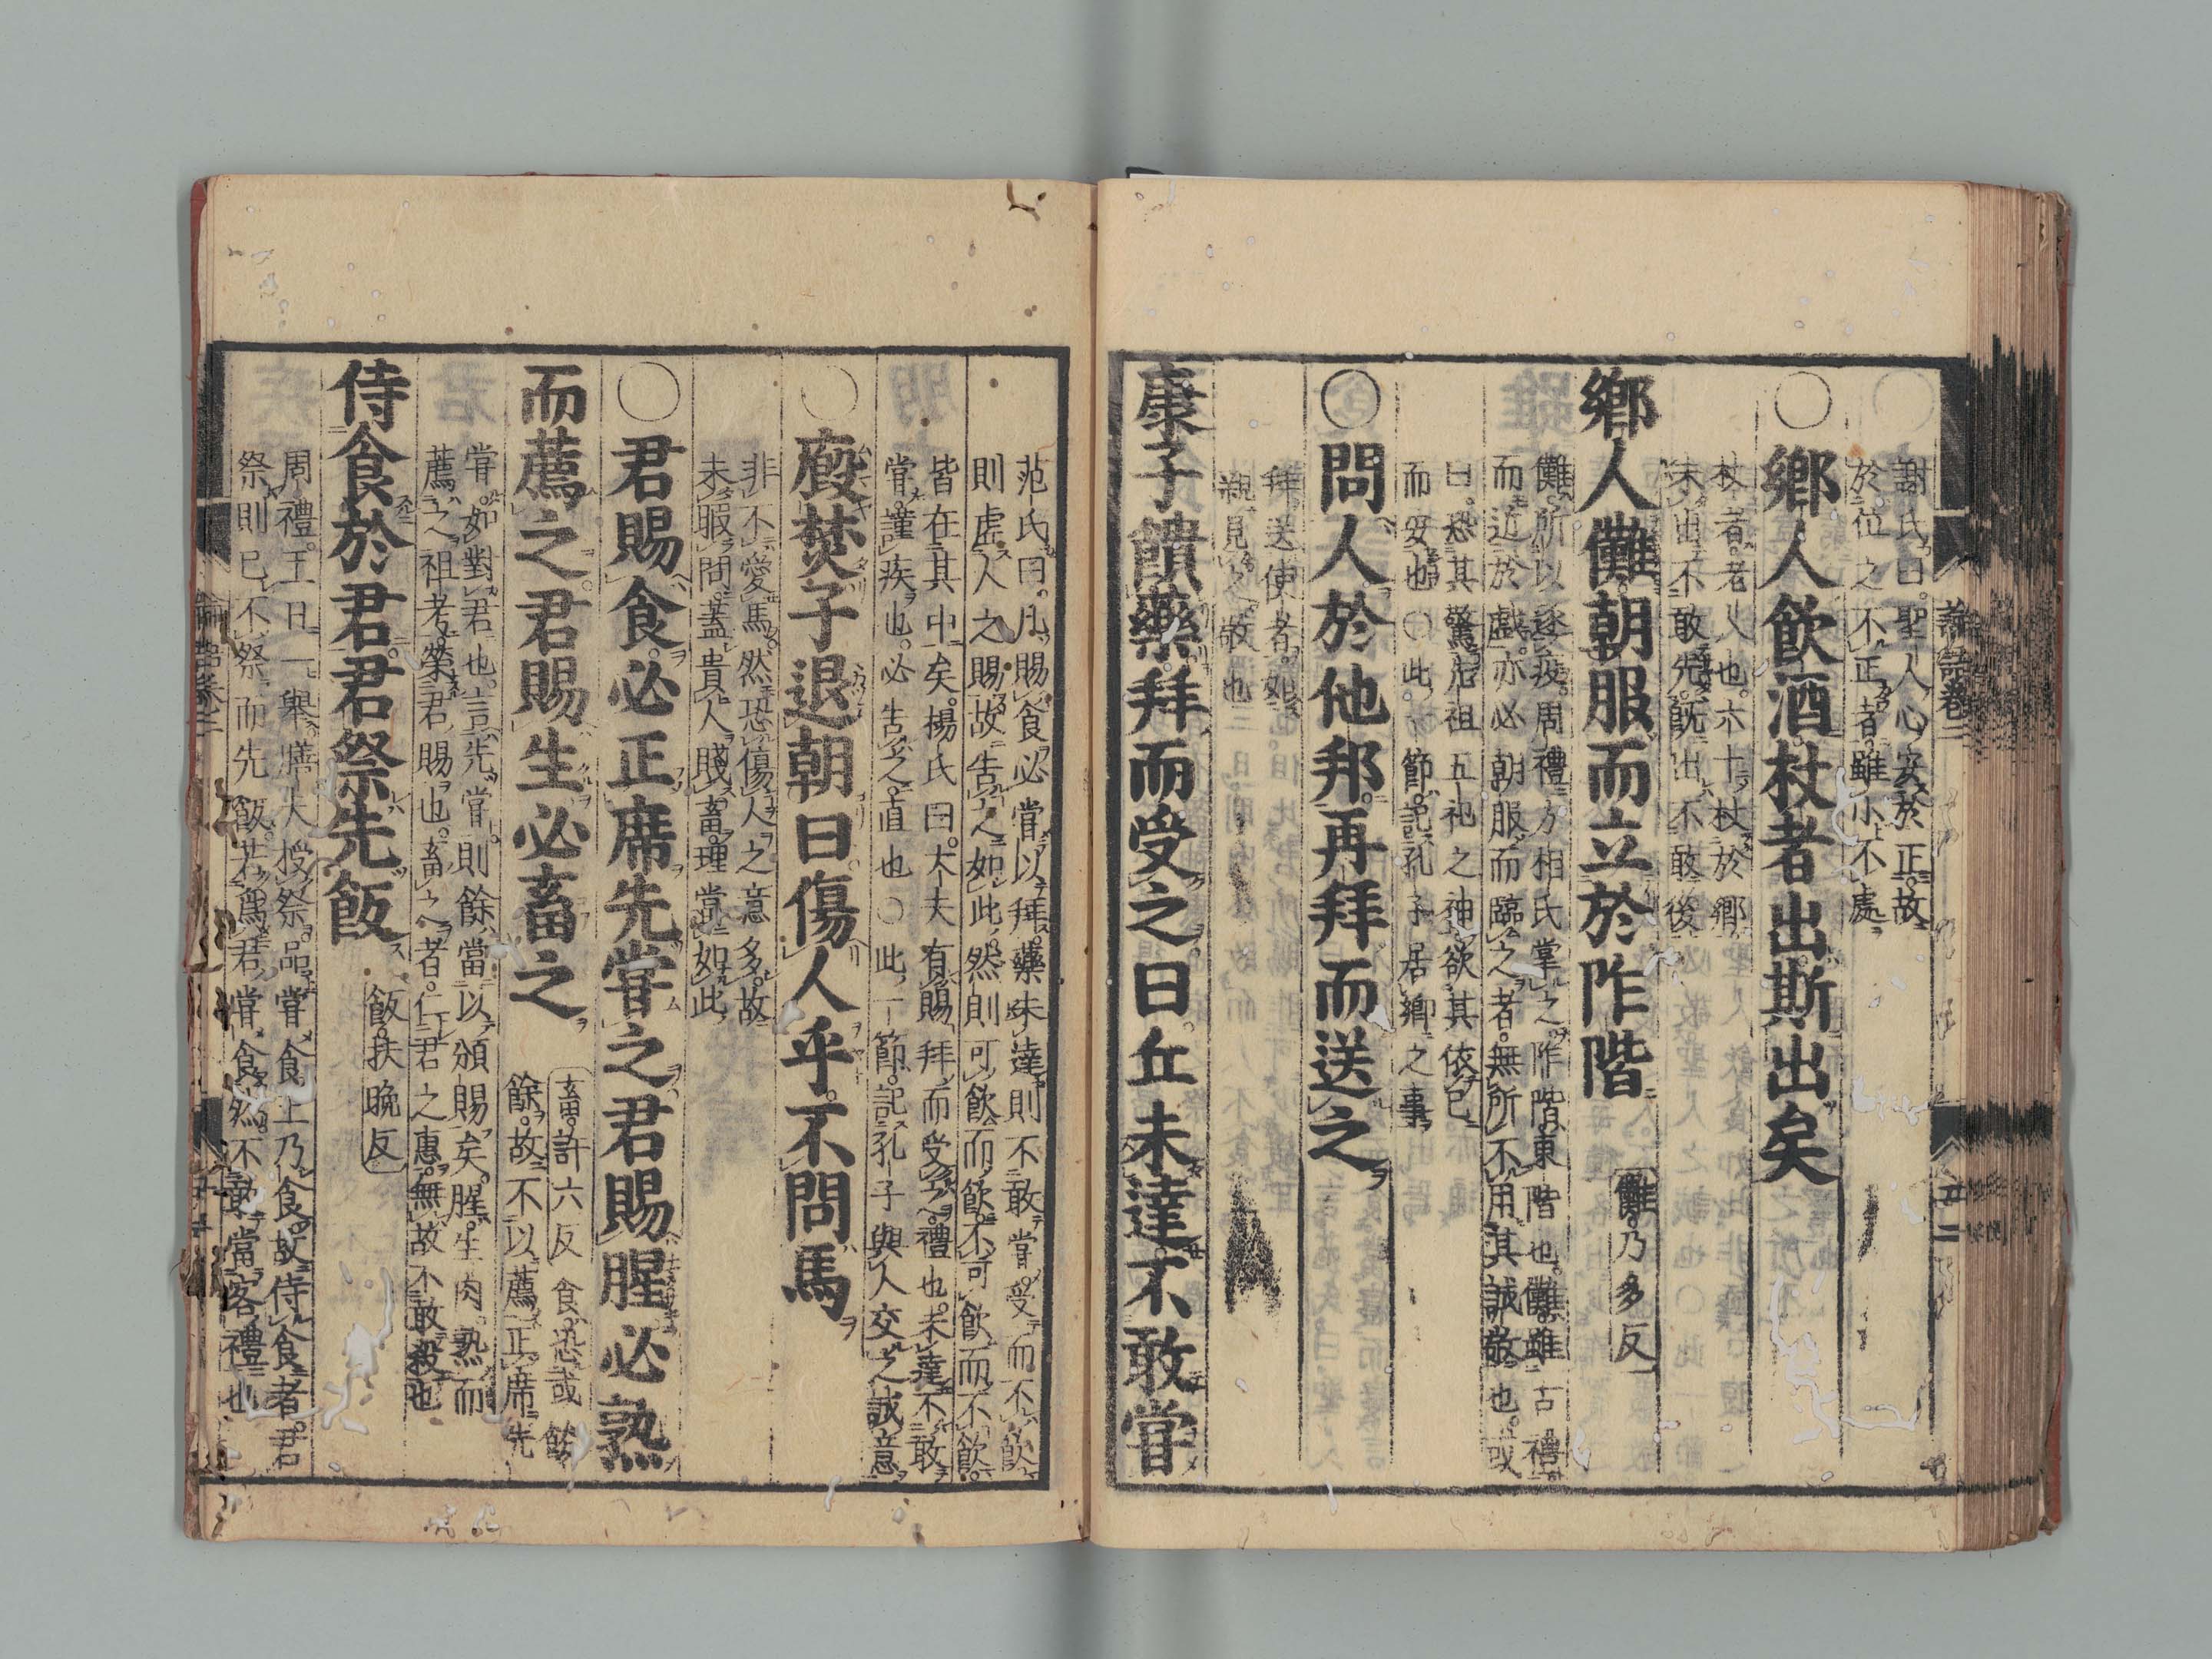 謝氏曰。聖人心安於正。故
於位之不正者。雖小不處。
○鄉人飲酒杖者出斯出矣
杖者。老人也。六十杖於鄉。
未出不敢先。既出不敢後
鄉人儺。朝服而立於阼階
儺。乃多反
儺。所以逐疫。周禮方相氏掌之。阼階。東階也。儺雖古禮
而近於戲。亦必朝服而臨之者。無所不用其誠敬也。或
曰。恐其驚先祖五祀之神。欲其依己
而安也○此一節。記孔子居鄉之事
○問人於他邦。再拜而送之
拜送使者。如
親見之。敬也
康子饋藥。拜而受之。曰。丘未達。不敢嘗
論語卷二
范氏曰。凡賜食必嘗以拜。藥未達則不敢嘗。受而不飲
則虛人之賜。故告之如此。然則可飲而飲。不可飲而不飲。
皆在其中矣。楊氏曰。大夫有賜。拜而受之。禮也。未達不敢
嘗。謹疾也。必告之。直也○此一節。記孔子與人交之誠意
○廄焚。子退朝曰。傷人乎。不問馬
非不愛馬。然恐傷人之意多。故
未暇問。蓋貴人賤畜。理當如此
○君賜食。必正席先嘗之。君賜腥必熟
而薦之。君賜生必畜之
畜。許六反 食。恐或餕
餘。故不以薦。正席先
嘗。如對君也。言先嘗。則餘當以頒賜矣。腥。生肉。熟而
薦之祖考。榮君賜也。畜之者。仁君之惠。無故不敢殺也
侍食於君。君祭先飯
飯。扶晚反
周禮。王日一舉。膳夫授祭。品嘗食。王乃食。故侍食者。君
祭則己不祭而先飯。若為君嘗食然。不敢當客禮也